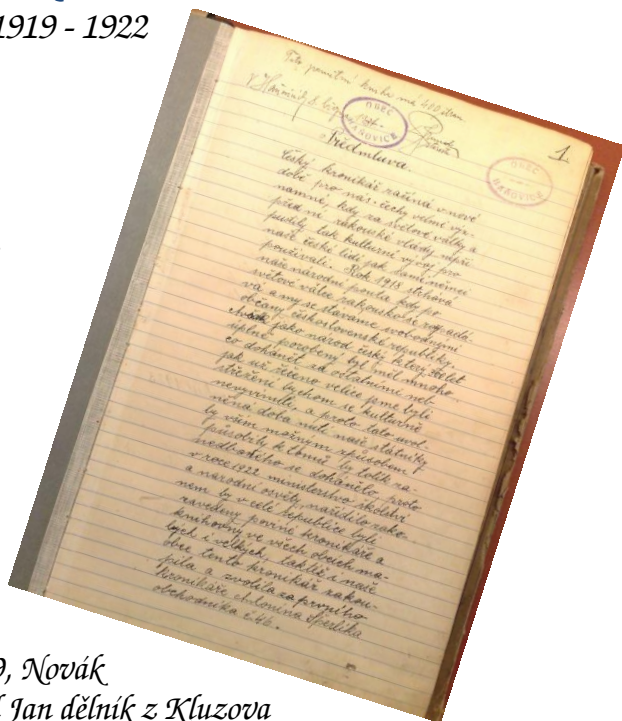 1919 - 1922
Tato pamětní kniha má 400 stran
V
OBEC
OBEC
1.
Předmluva.
Český kronikář začíná v nové
době pro nás čechy velmi výz-
namné, kdy za světové války a
před ní rakouské vlády
tak kulturní vývoj pro
naše české lidi jak sami němci
používali. Rok 1918 strhává
naše národní pouta kdy po
světové válce rakouskoně
vá a my se stáváme svobodnými
občany československé republiky.
jako národ český let
úplně porobený byl měl mnoho
co dohánět za ostatními neb
jak už řečeno velice jsme byli
střeženi bychom se kulturně
nevyvinuli, a proto tato
doba nutí naše státníky
by vším možným způsobem
působily k tomu by tolik za-
nedbaného se dohánělo, proto
v roce 1922 ministerstvo školství
a národní osvěty nařídilo záko-
nem by v celé republice byli
zavedeny povině kronikáře a
knihovny ve všech obcích ma-
lých i velkých, taktéž i naše
obec tento kronikář zakou-
pila a zvolila za prvního
kronikáře Antonína Šperlíka
obchodníka č 46.
9, Novák
Jan dělník z Kluzova